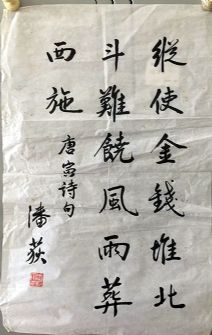 縱使金錢堆北
斗難饒風雨葬
西施
唐寅詩句
潘荻